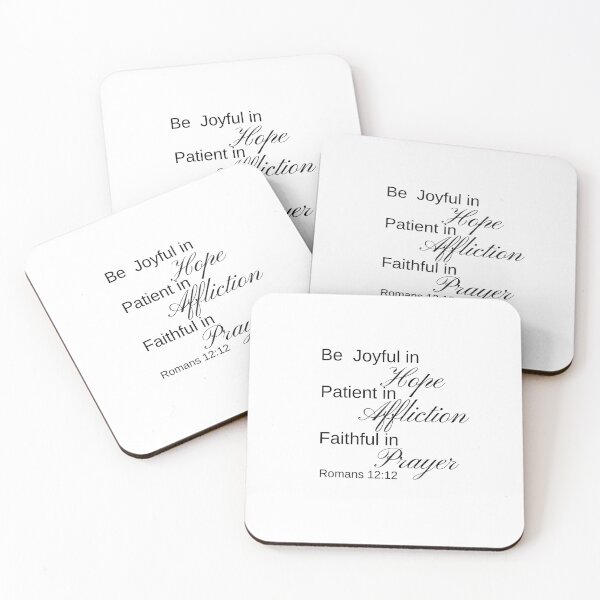 Be Joyful in
Hope
Patient in
Affliction
Be Joyful in
Hope
Patient in
Affliction
Faithful in
Prayer
Romans
Be Joyful in
Hope
Patient in
Affliction
Faithful in
Prayer
Romans 12:12
Be Joyful in
Hope
Patient in
Affliction
Faithful in
Prayer
Romans 12:12